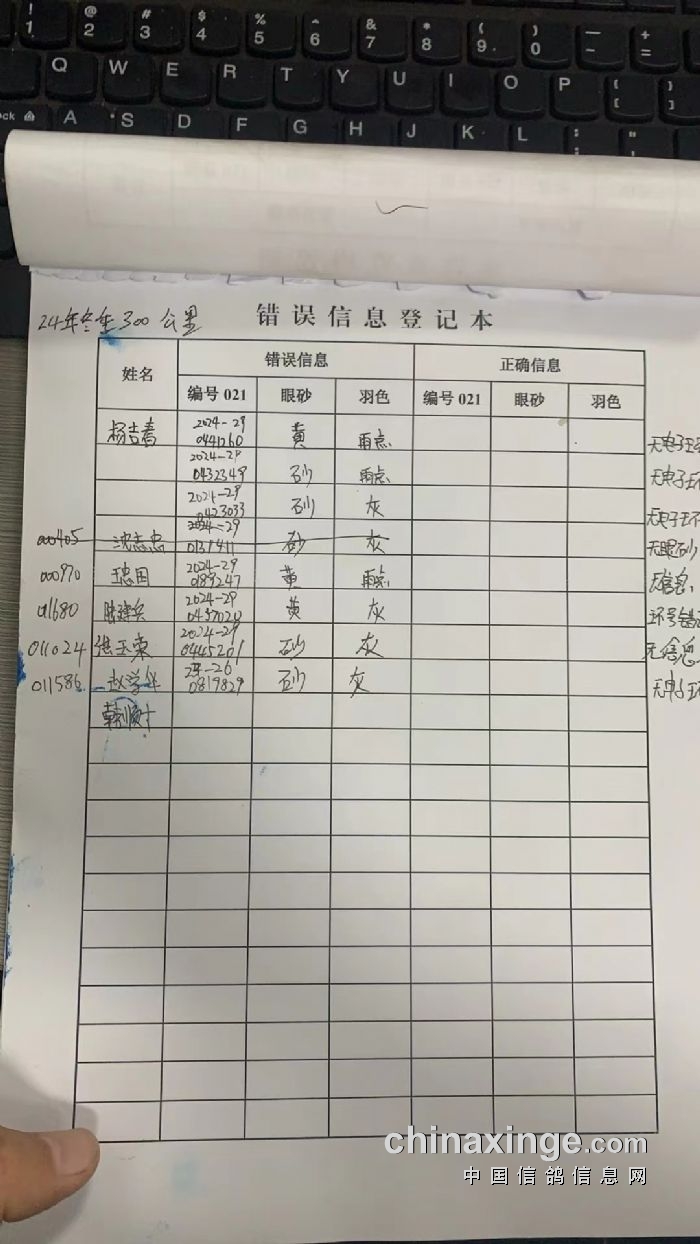 ! 1 @ 2 # 3 $ 4 % 5 ^ 6 & 7 * 8 ( 9 ) 0 — - + =
Q W E R T Y U I O P { [ } ]
A S D F G H J K L : ; " '
24年冬季300公里 错误信息登记本
姓名 错误信息 正确信息
编号 021 眼砂 羽色 编号 021 眼砂 羽色
杨吉春 2024-29 0441260 黄 雨点
2024-29 0432349 砂 雨点 无电子环
2024-29 0423033 砂 灰 无电子环
000405 沈志忠 2024-29 砂 灰 无眼砂
000970 2024-29 0189247 黄 雨点 无信息
陈建兵 2024-29 黄 灰 环号错
011024 张玉荣 2024-29 0445201 砂 灰 无信息
011586 赵学 0819829 砂 灰 无电子环
韩顺
chinaxinge.com
中国信鸽信息网